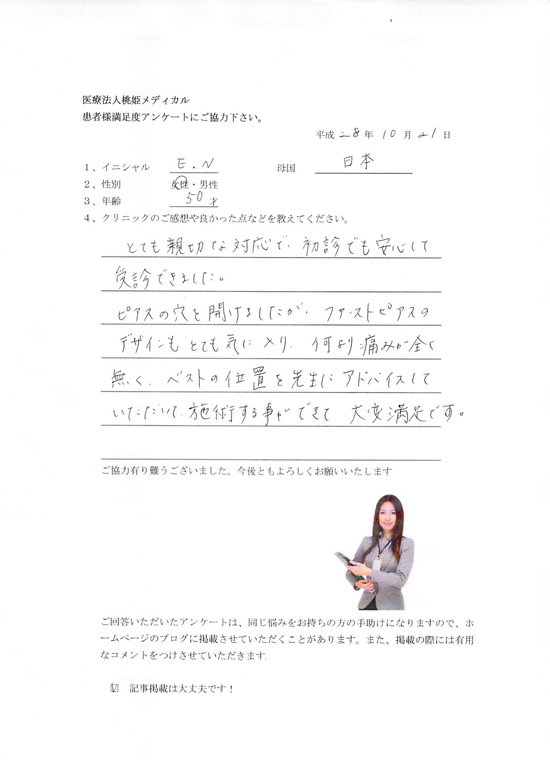 医療法人桃姫メディカル
患者様満足度アンケートにご協力下さい。
平成 28年 10月 21日
1、イニシャル E.N 母国 日本
2、性別 女性・男性
3、年齢 50才
4、クリニックのご感想や良かった点などを教えてください。
とても親切な対応で、初診でも安心して
受診できました。
ピアスの穴を開けましたが、ファーストピアスの
デザインもとても気に入り、何より痛みが全く
無く、ベストの位置を先生にアドバイスして
いただいて、施術する事ができて 大変満足です。
ご協力有り難うございました。今後ともよろしくお願いいたします
ご回答いただいたアンケートは、同じ悩みをお持ちの方の手助けになりますので、ホ
ームページのブログに掲載させていただくことがあります。また、掲載の際には有用
なコメントをつけさせていただきます.
☑ 記事掲載は大丈夫です！